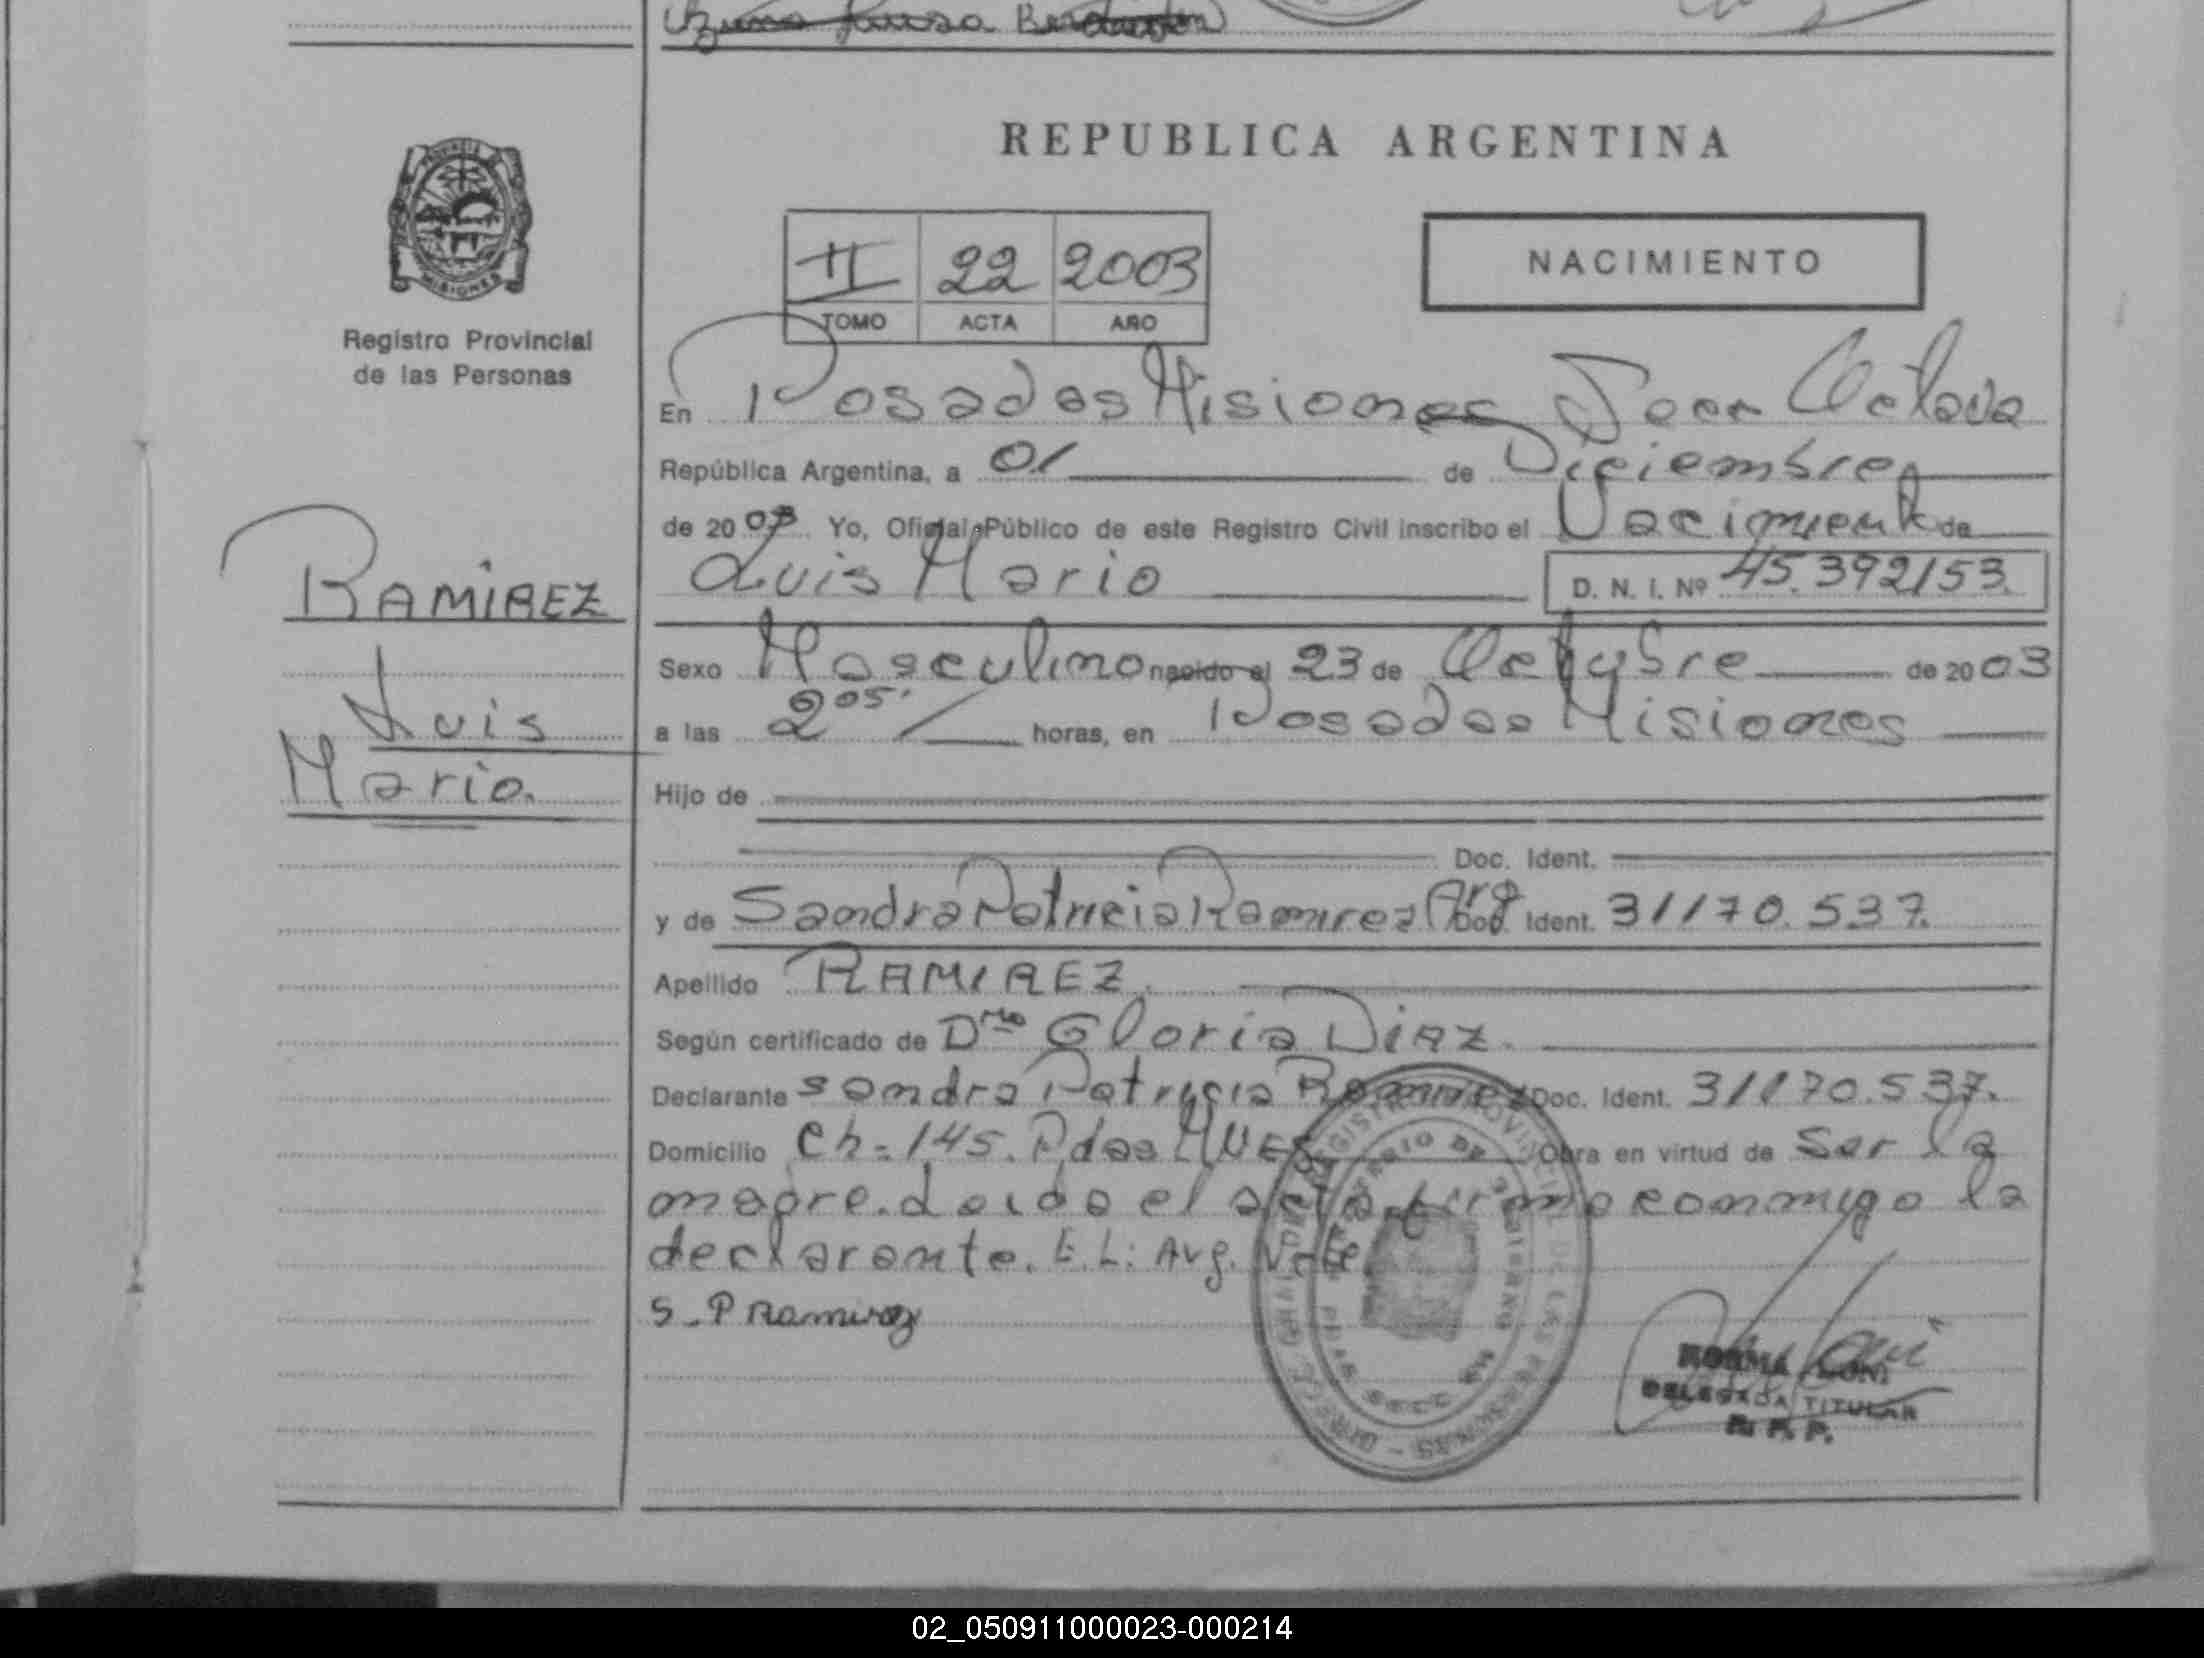 REPUBLICA ARGENTINA
PROVINCIA DE
MISIONES
Registro Provincial
de las Personas
II 22 2003
TOMO ACTA AÑO
NACIMIENTO
En Posadas Misiones Secc Octava
República Argentina, a 01 de Diciembre
de 2003 Yo, Oficial Público de este Registro Civil inscribo el Nacimiento de
Luis Mario D. N. I. Nº 45.392153.
RAMIREZ
Luis
Mario.
Sexo Masculino nacido el 23 de Octubre de 2003
a las 2 05' horas, en Posadas Misiones
Hijo de
Doc. Ident.
y de Sandra Patricia Ramirez Arg Doc. Ident. 31170.537.
Apellido RAMIREZ.
Según certificado de Dra Gloria DIAZ.
Declarante Sandra Patricia Ramirez Doc. Ident. 31170.537.
Domicilio Ch=145. Pdas Mnes Obra en virtud de ser la
madre. Leida el acta firma conmigo la
declarante. E.L: Arg. Vale
S. P Ramirez
NORMA
DELEGADA TITULAR
R. P. P.
02_050911000023-000214